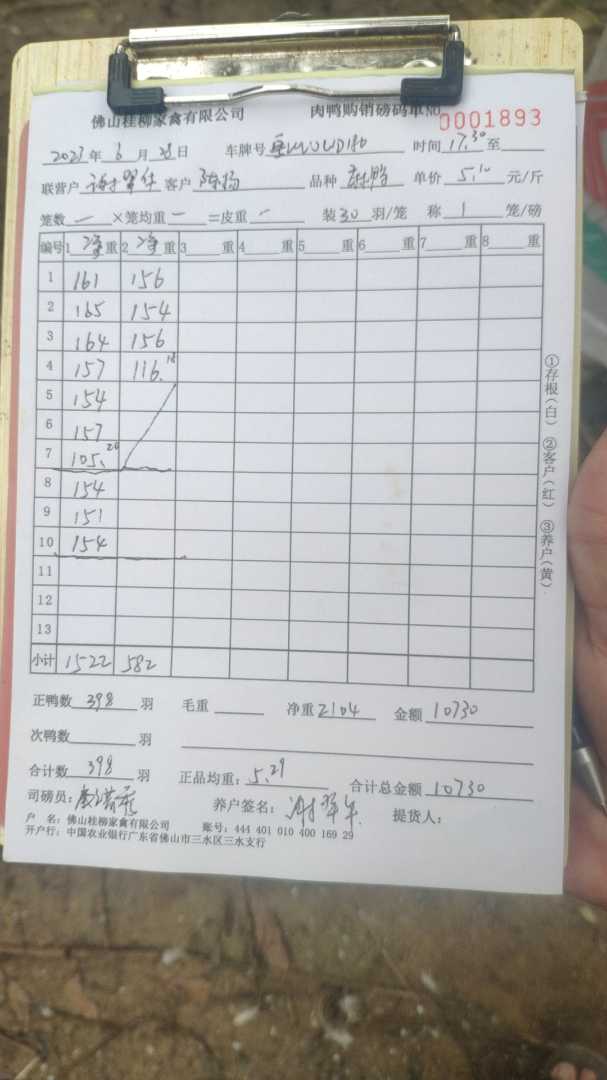 佛山桂柳家禽有限公司 肉鸭购销磅码单No 0001893
2023年 6月 28日 车牌号 时间 17:30 至
联营户 客户 陈扬 品种 单价 5.10 元/斤
笼数 一 ×笼均重 一 =皮重 一 装 30 羽/笼 称 1 笼/磅
编号 1 净 重 2 净 重 3 重 4 重 5 重 6 重 7 重 8 重
1 161 156
2 165 154
3 164 156
4 157 116.18
5 154
6 157
7 105.20
8 154
9 151
10 154
11
12
13
小计 1522 582
①存根(白) ②客户(红) ③养户(黄)
正鸭数 398 羽 毛重 净重 2104 金额 10730
次鸭数 羽
合计数 398 羽 正品均重: 5.29 合计总金额 10730
司磅员: 养户签名: 提货人:
户 名: 佛山桂柳家禽有限公司 账号: 444 401 010 400 169 29
开户行: 中国农业银行广东省佛山市三水区三水支行